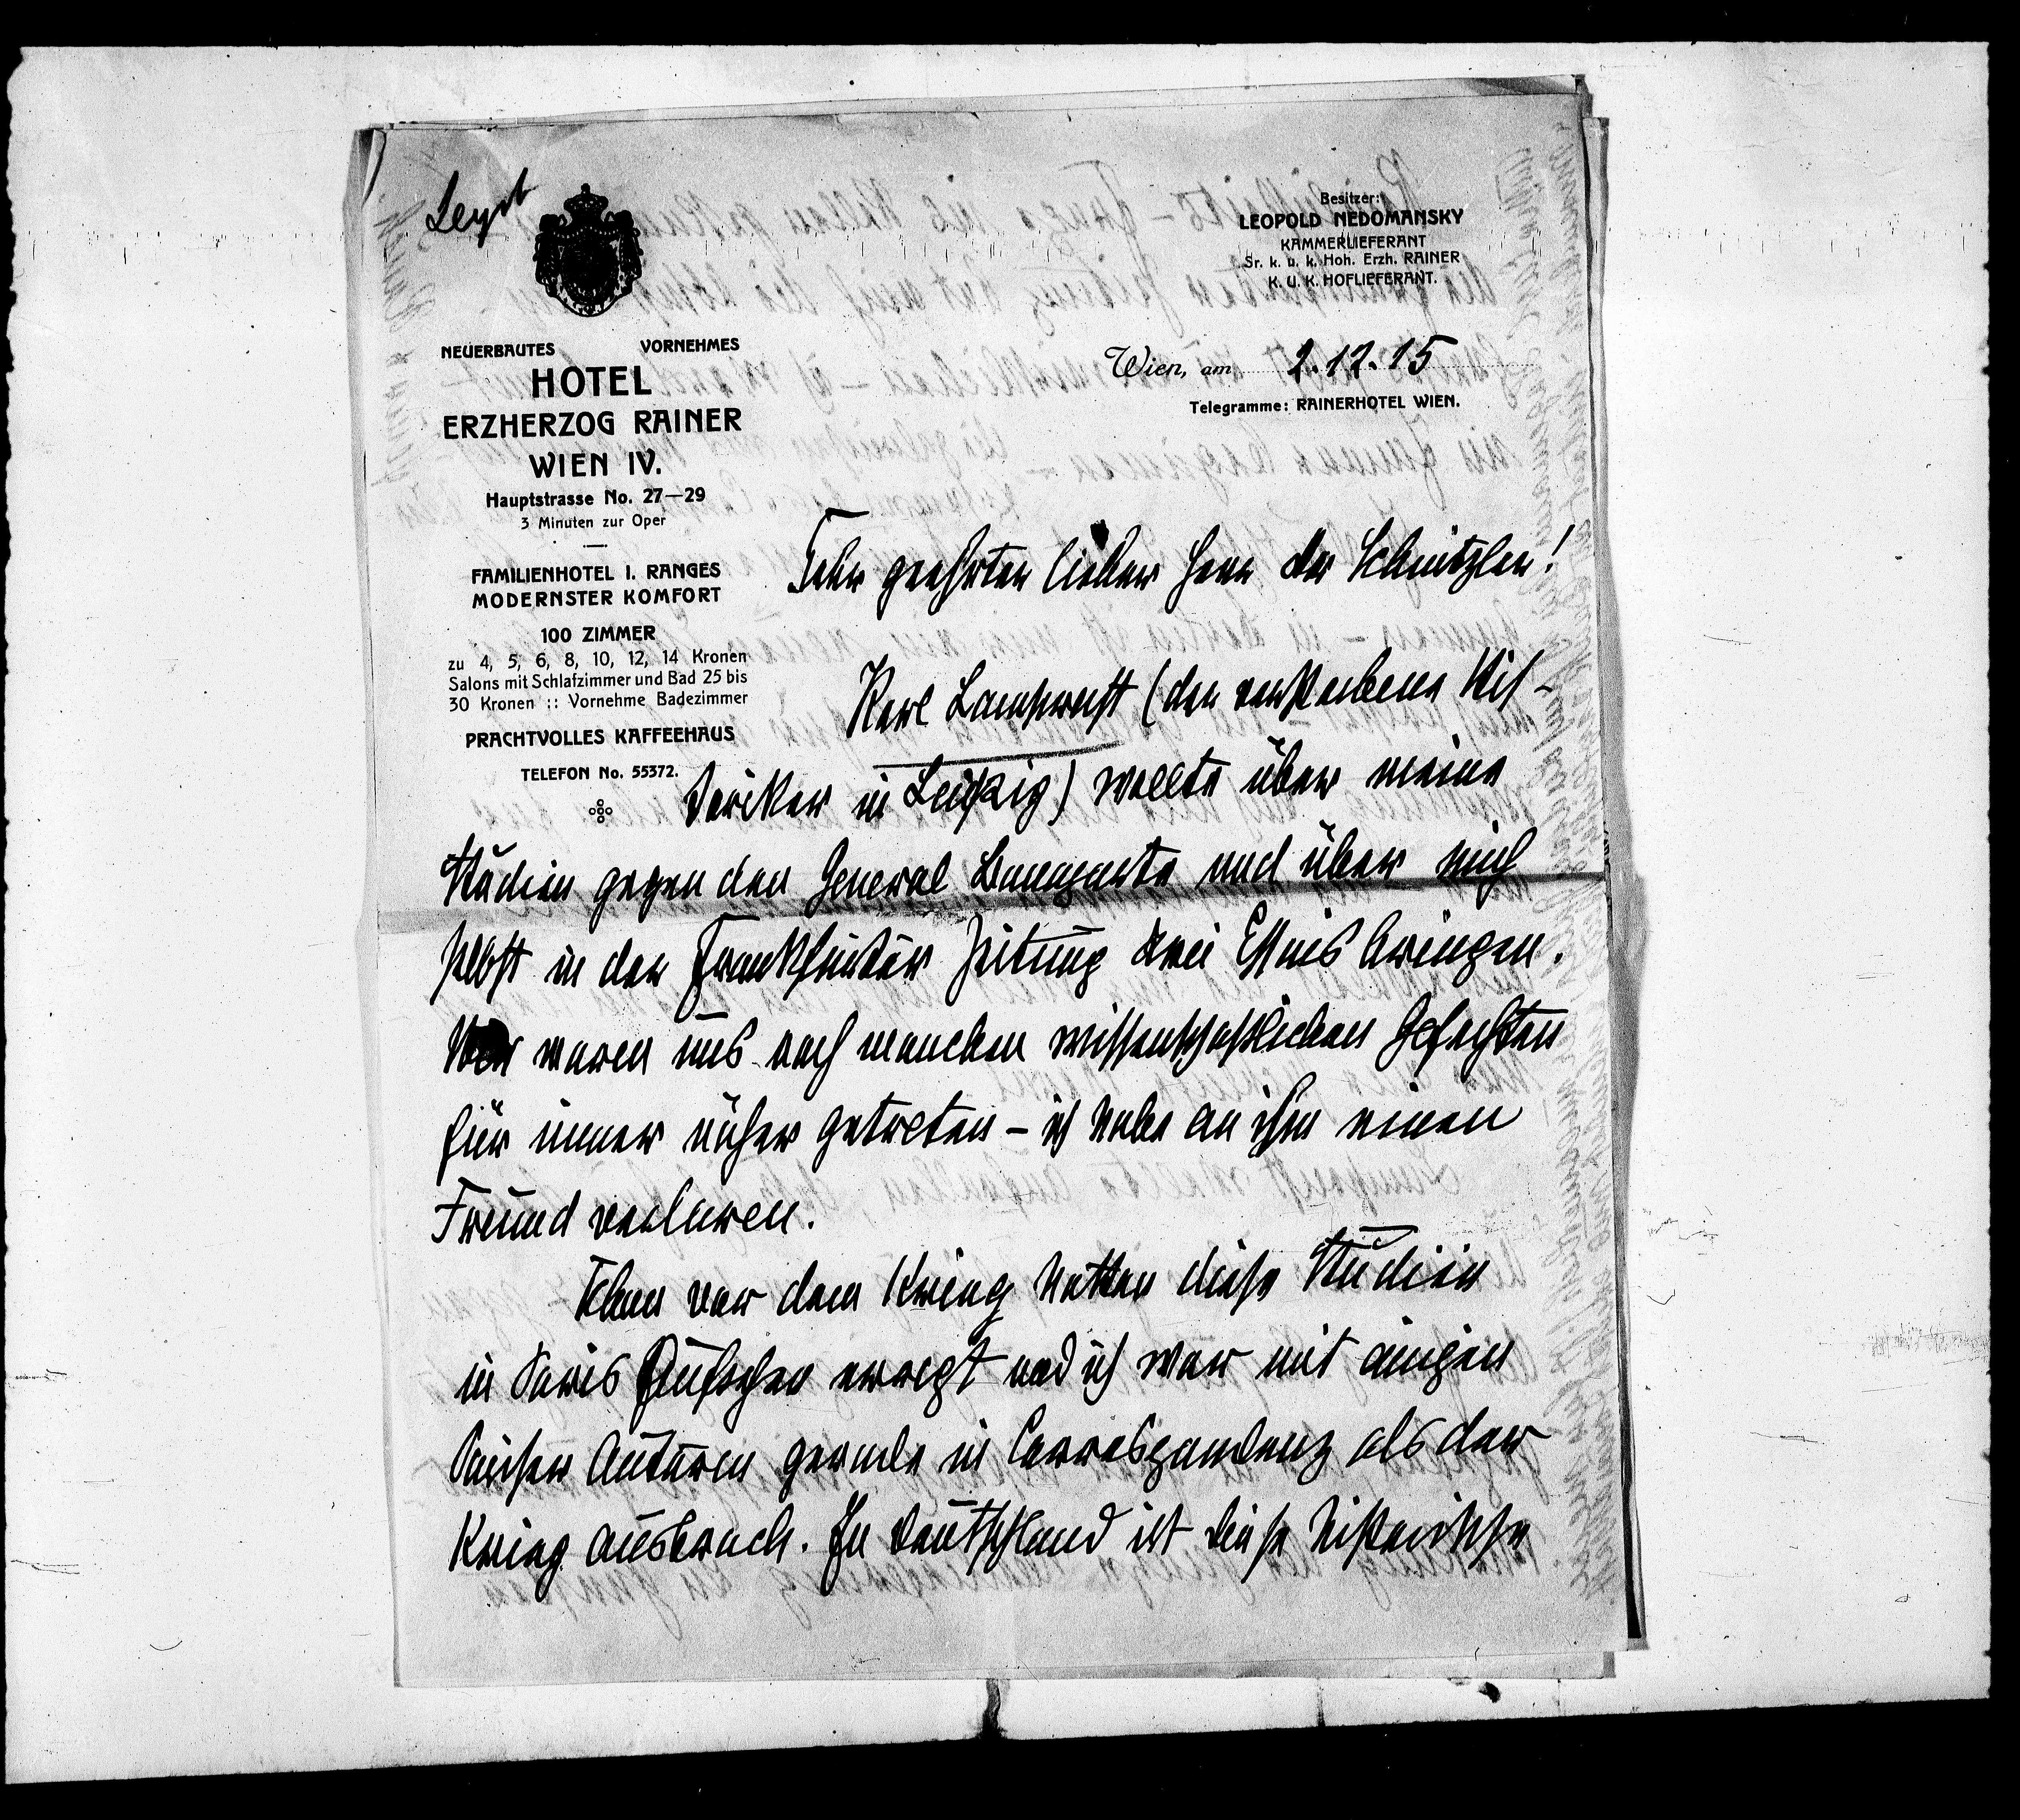 Besitzer:
LEOPOLD NEDOMANSKY
KAMMERLIEFERANT
Sr. k. u. k. Hoh. Erzh. RAINER
K. U. K. HOFLIEFERANT.
NEUERBAUTES VORNEHMES
HOTEL
ERZHERZOG RAINER
WIEN IV.
Hauptstrasse No. 27—29
3 Minuten zur Oper
FAMILIENHOTEL I. RANGES
MODERNSTER KOMFORT
100 ZIMMER
zu 4, 5, 6, 8, 10, 12, 14 Kronen
Salons mit Schlafzimmer und Bad 25 bis
30 Kronen :: Vornehme Badezimmer
PRACHTVOLLES KAFFEEHAUS
TELEFON No. 55372.
Wien, am 2.12.15
Telegramme: RAINERHOTEL WIEN.
Sehr geehrter lieber Herr Dr Schnitzler!
Karl Lamprecht (der verstorbene His-
toriker in Leipzig) wollte über meine
Studien gegen den General Bonaparte und über mich
selbst in der Frankfurter Zeitung drei Essais bringen.
Wir waren uns nach manchen wissenschaftlichen Gefechten
für immer näher getreten – ich habe an ihm einen
Freund verloren.
Schon vor dem Krieg hatten diese Studien
in Paris Aufsehen erregt und ich war mit einigen
Pariser Autoren gerade in Correspondenz als der
Krieg ausbrach. In Deutschland ist diese historische